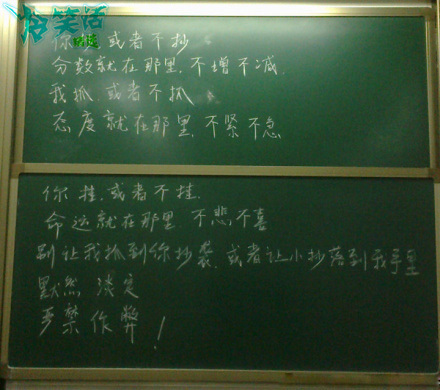 好笑话
精选
你抄,或者不抄
分数就在那里,不增不减.
我抓,或者不抓
态度就在那里,不紧不急
你挂,或者不挂.
命运就在那里 不悲不喜
别让我抓到你抄袭,或者让小抄落到我手里
默然 淡定
严禁作弊!